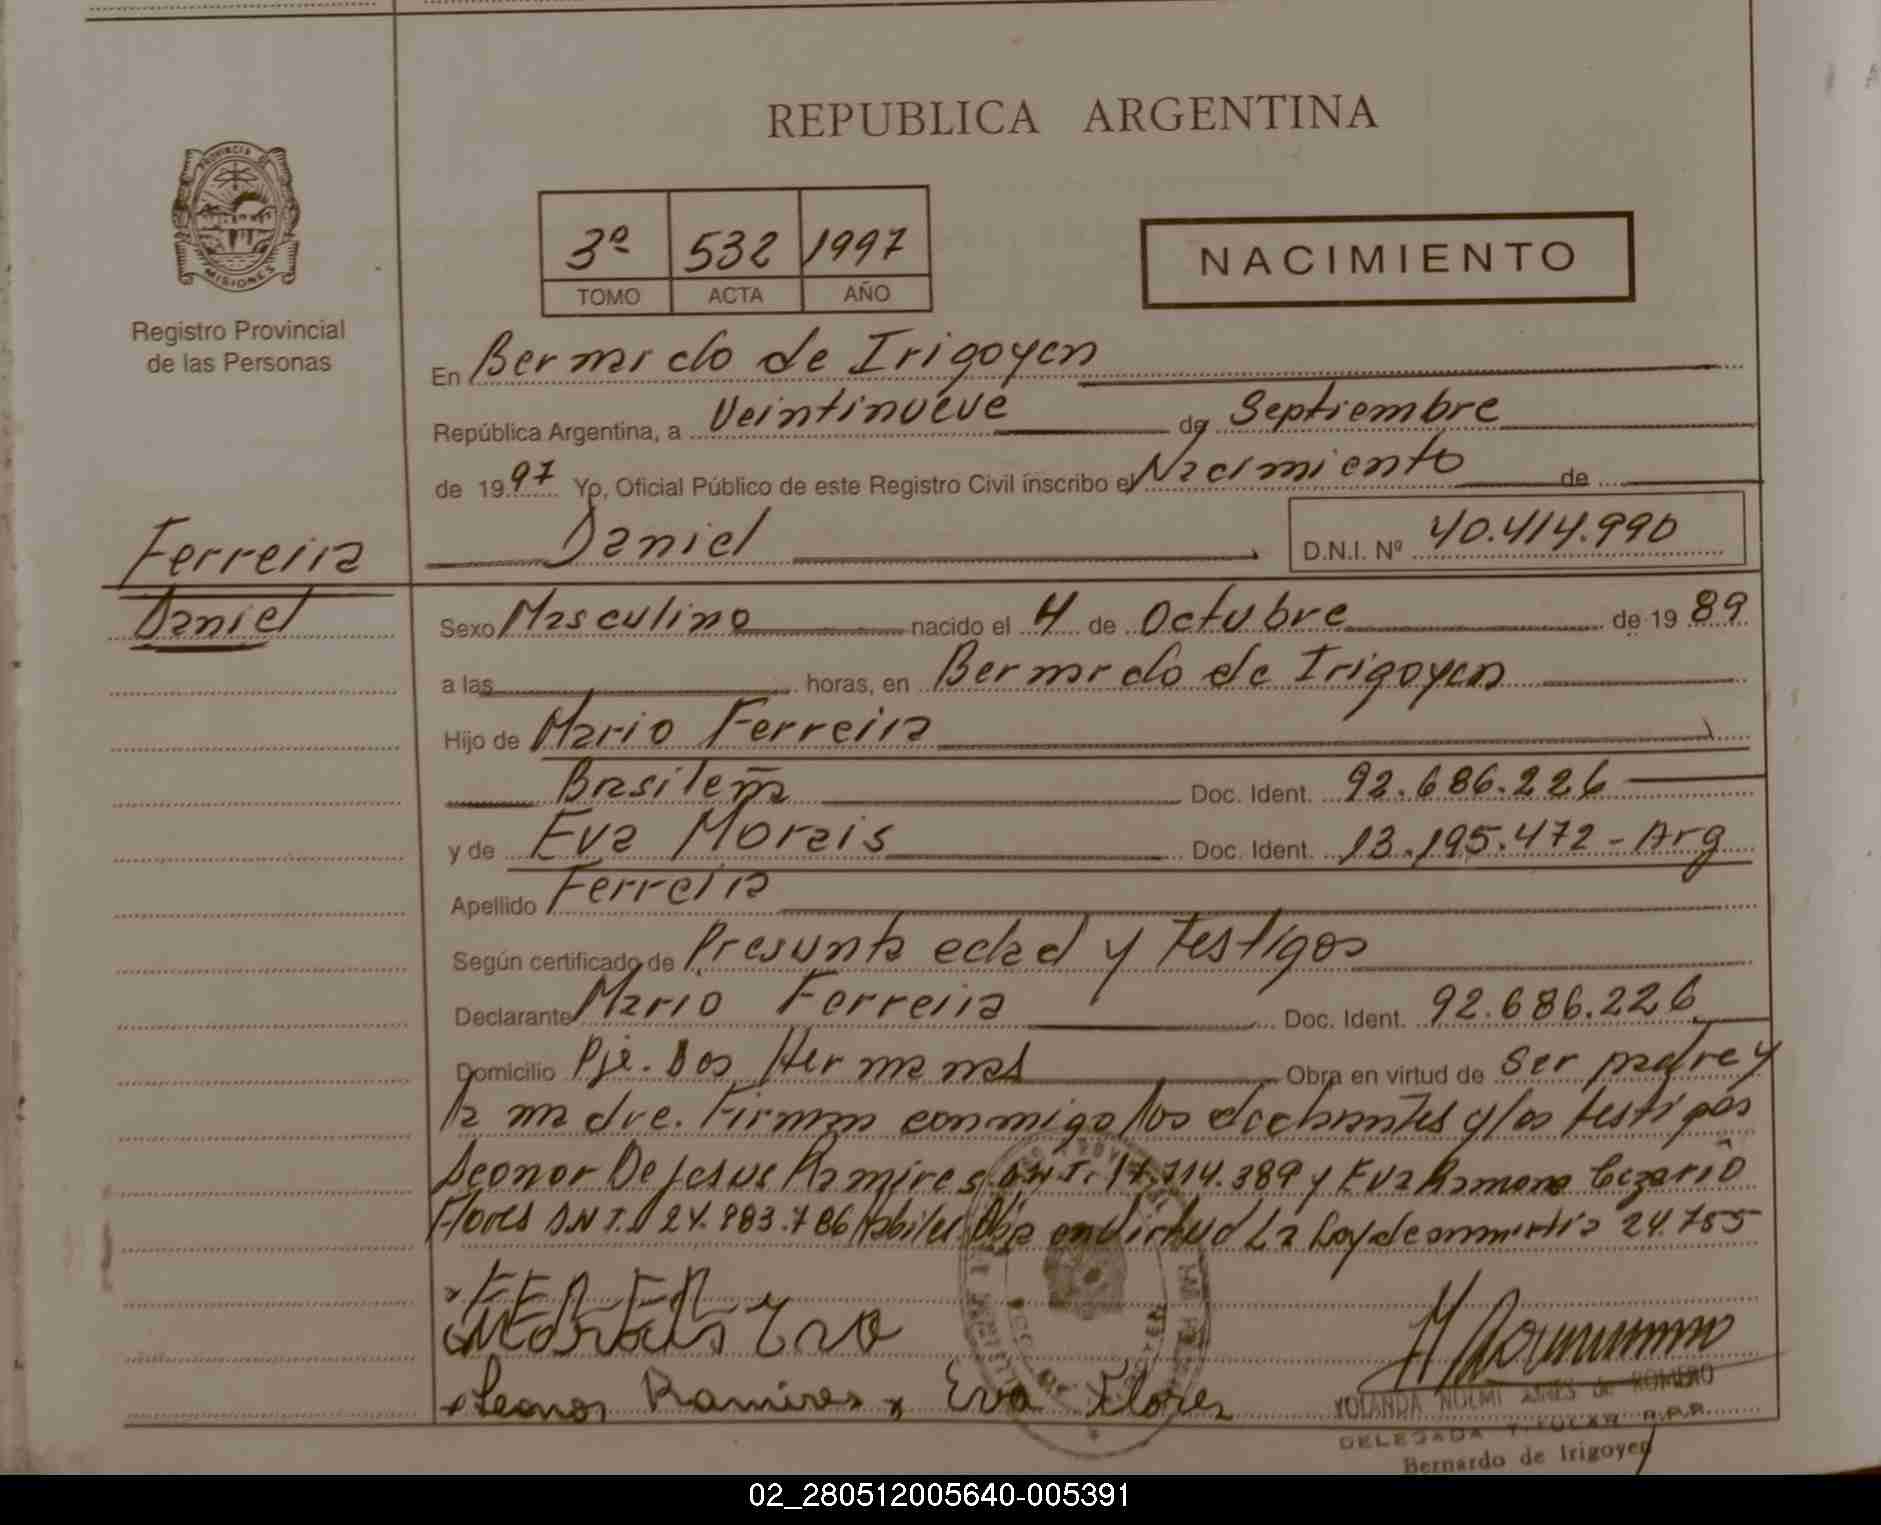 REPUBLICA ARGENTINA
PROVINCIA DE
MISIONES
Registro Provincial
de las Personas
3º 532 1997
TOMO ACTA AÑO
NACIMIENTO
En Bernardo de Irigoyen
República Argentina, a Veintinueve de Septiembre
de 1997 Yo, Oficial Público de este Registro Civil inscribo el Nacimiento de
Daniel D.N.I. Nº 40.414.990
Ferreira
Daniel
Sexo Masculino nacido el 4 de Octubre de 1989
a las horas, en Bernardo de Irigoyen
Hijo de Mario Ferreira
Brasileña Doc. Ident. 92.686.226
y de Eva Morais Doc. Ident. 13.195.472 - Arg
Apellido Ferreira
Según certificado de Presunta edad y testigos
Declarante Mario Ferreira Doc. Ident. 92.686.226
Domicilio Pje. Dos Hermanas Obra en virtud de ser padre y
la madre. Firman conmigo los declarantes y los testigos
Leonor De Jesus Ramires D.N.I. 17.714.389 y Eva Ramona
Flores D.N.I. 24.983.786 habiles en virtud La Ley de amnistia 24.755
Morais Eva
Leonor Ramires x Eva Flores
YOLANDA NOEMI de ROMERO
DELEGADA TITULAR R.P.P.
Bernardo de Irigoyen
02_280512005640-005391